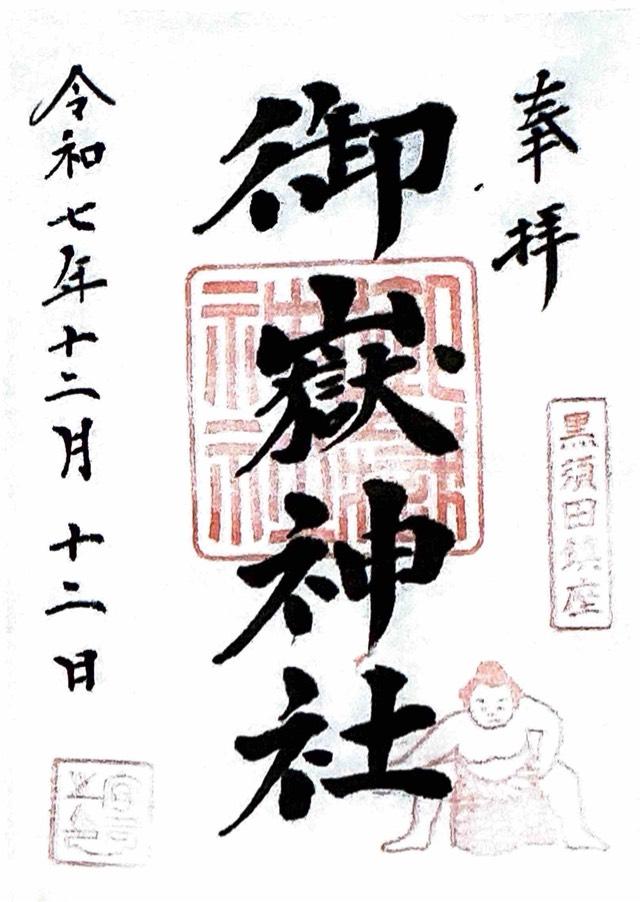 奉拝
黒須田鎮座
御嶽神社
御嶽神社
令和七年十二月十二日